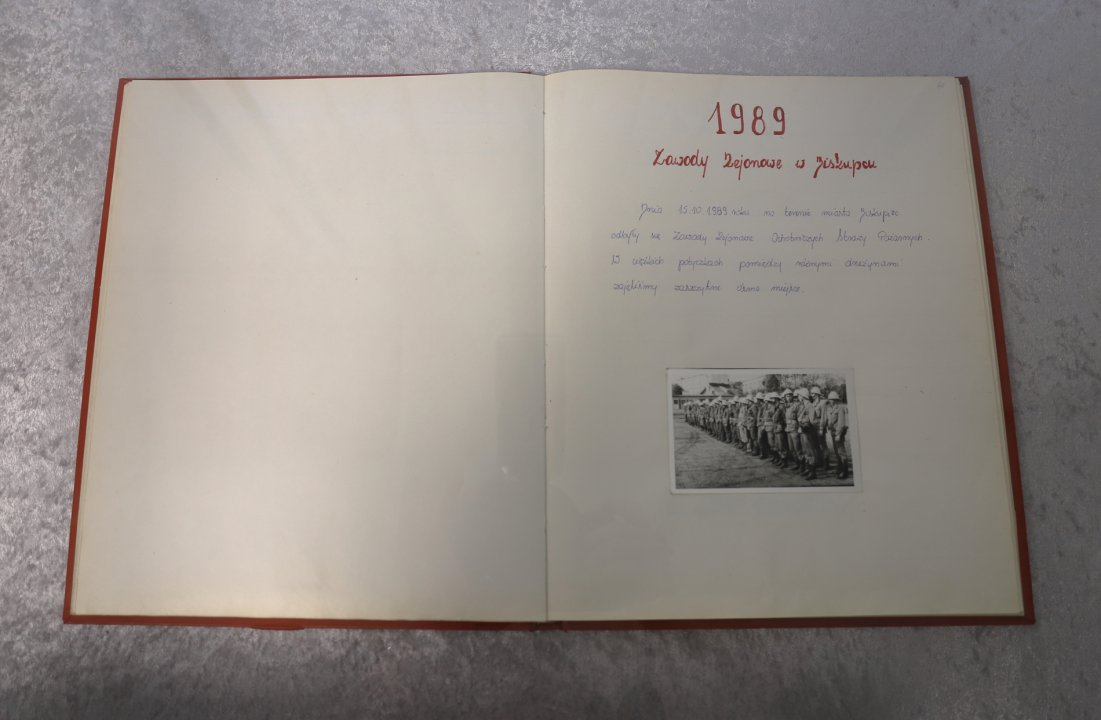 1989
Zawody Rejonowe w Biskupcu
Dnia 15.10.1989 roku na terenie miasta Biskupiec
odbyły się Zawody Rejonowe Ochotniczych Straży Pożarnych.
W wielkich potyczkach pomiędzy różnymi drużynami
zajęliśmy zaszczytne ósme miejsce.